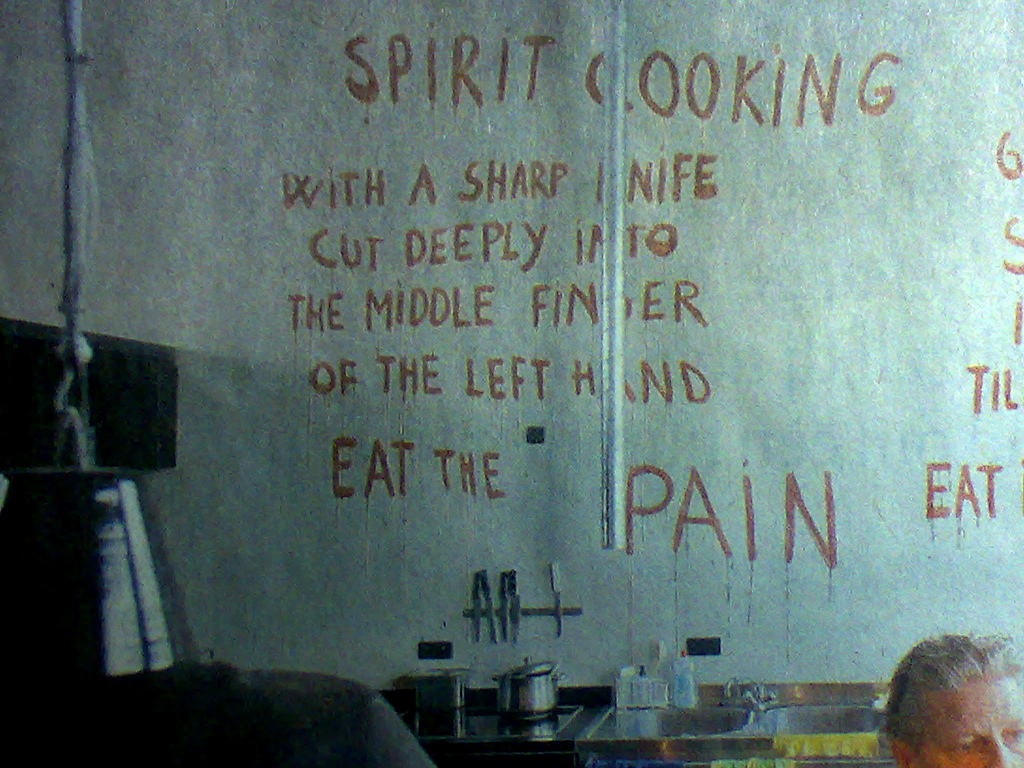 SPIRIT COOKING
WITH A SHARP KNIFE
CUT DEEPLY INTO
THE MIDDLE FINGER
OF THE LEFT HAND
EAT THE PAIN
EAT